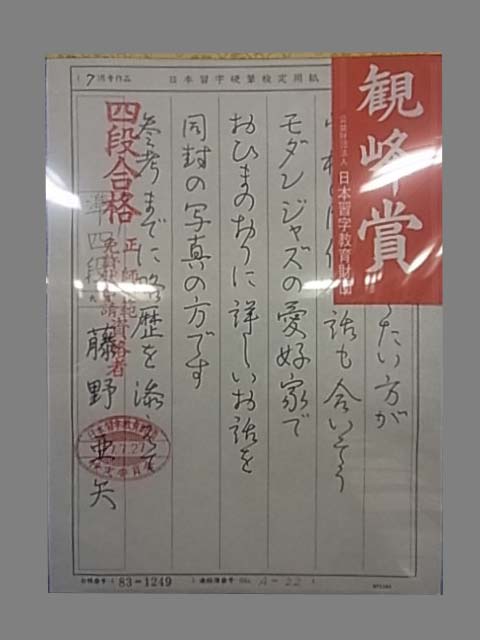 (7)月号作品
日本習字硬筆検定用紙
観峰賞
公益財団法人
日本習字教育財団
たい方が
話も合いそう
モダンジャズの愛好家で
おひまのおりに詳しいお話を
同封の写真の方です
参考までに略歴を添えて
四段合格
正師範資格者
準四段
藤野亜矢
(83-1249)
A-22